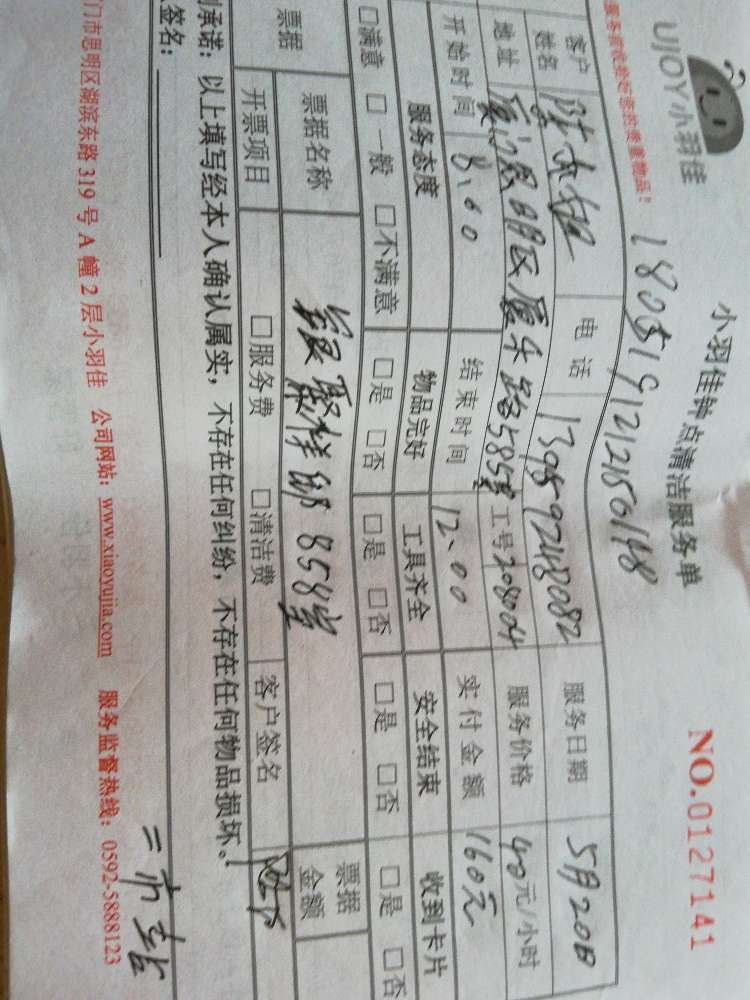 UJOY小羽佳
小羽佳钟点清洁服务单
NO.0127141
1805191212150148
客户姓名 电话 13959248082 服务日期 5月20日
地址 厦门思明区厦禾路585号 工号 20804 服务价格 40元/小时
开始时间 8.00 结束时间 12.00 实付金额 160元
服务态度 物品完好 工具齐全 安全结束 收到卡片
□满意 □一般 □不满意 □是 □否 □是 □否 □是 □否 □是 □否
票据 票据名称 银聚祥邸858室 票据金额
开票项目 □服务费 □清洁费 客户签名
承诺：以上填写经本人确认属实，不存在任何纠纷，不存在任何物品损坏。
签名：
门市思明区湖滨东路319号A幢2层小羽佳 公司网站：www.xiaoyujia.com 服务监督热线：0592-5888123